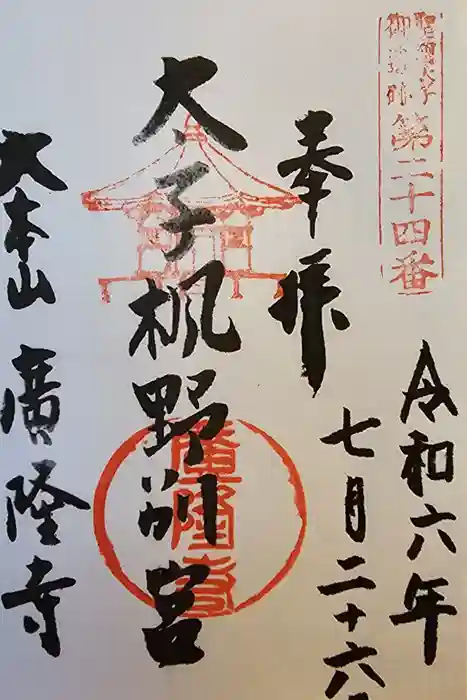 聖徳太子
御遺跡
第二十四番
奉拝
令和六年
七月二十六
太子楓野別宮
廣隆寺
大本山
廣隆寺